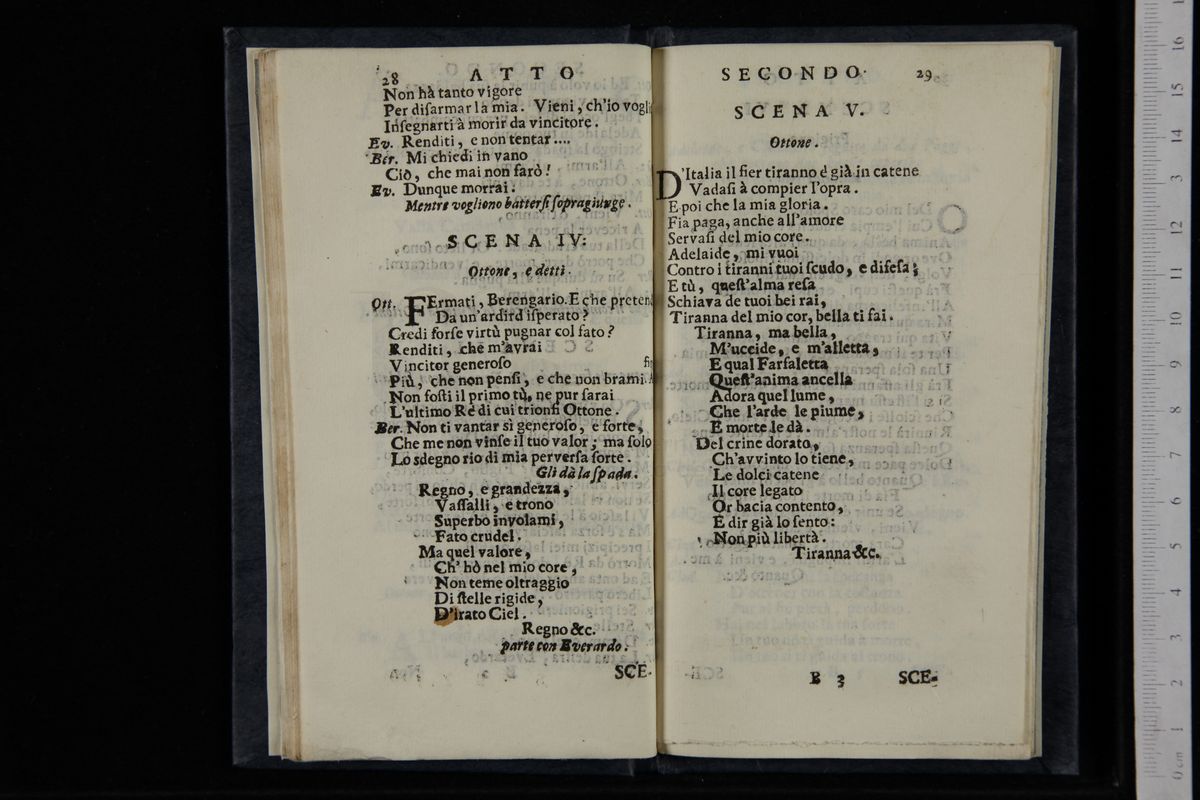 28 ATTO
Non hà tanto vigore
Per diſarmar la mia. Vieni, ch'io vogli
Inſegnarti à morir da vincitore.
Ev. Renditi, e non tentar....
Ber. Mi chiedi in vano
Ciò, che mai non farò!
Ev. Dunque morrai.
Mentre vogliono batterſi ſopragiunge.
SCENA IV:
Ottone, e detti.
Ott. FErmati, Berengario. E che preten
Da un'ardird iſperato?
Credi forſe virtù pugnar col fato?
Renditi, che m'avrai
Vincitor generoſo
Più, che non penſi, e che non brami.
Non foſti il primo tù, ne pur ſarai
L'ultimo Rè di cui trionfi Ottone.
Ber. Non ti vantar sì generoſo, e forte,
Che me non vinſe il tuo valor; ma ſolo
Lo sdegno rio di mia perverſa ſorte.
Gli dà la ſpada.
Regno, e grandezza,
Vaſſalli, e trono
Superbo involami,
Fato crudel.
Ma quel valore,
Ch' hò nel mio core,
Non teme oltraggio
Di ſtelle rigide,
D'irato Ciel.
Regno &c.
parte con Everardo.
SCE-
SECONDO. 29
SCENA V.
Ottone.
D'Italia il fier tiranno è già in catene
Vadaſi à compier l'opra.
E poi che la mia gloria.
Fia paga, anche all'amore
Servaſi del mio core.
Adelaide, mi vuoi
Contro i tiranni tuoi ſcudo, e difeſa;
E tù, queſt'alma reſa
Schiava de tuoi bei rai,
Tiranna del mio cor, bella ti fai.
Tiranna, ma bella,
M'uccide, e m'alletta,
E qual Farfaletta
Queſt'anima ancella
Adora quel lume,
Che l'arde le piume,
E morte le dà.
Del crine dorato,
Ch'avvinto lo tiene,
Le dolci catene
Il core legato
Or bacia contento,
E dir già lo ſento:
Non più libertà.
Tiranna &c.
B 3 SCE-
16
15
14
13
12
11
10
9
8
7
6
5
4
3
2
1
0 cm